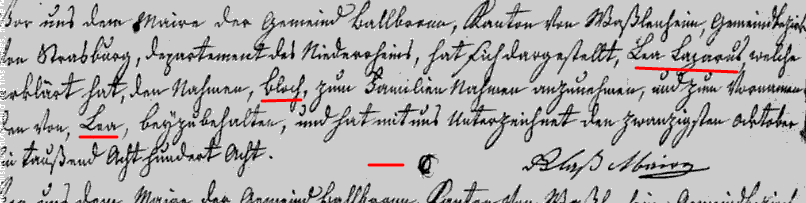 Vor uns dem Maire der Gemeind Ballbronn, Kanton von Waßlenheim, Gemeindbezirk
von Strasburg, departement des Niederrheins, hat sich dargestellt, Lea Lazarus, welche
erklärt hat, den Nahmen, Bloch, zum Familien Nahmen anzunehmen, und zum Vornamen
den von, Lea, beyzubehalten, und hat mit uns Unterzeichnet den zwanzigsten oktober
ein taußend Acht hundert Acht.
Maire
Vor uns dem Maire der Gemeind Ballbronn, Kanton von